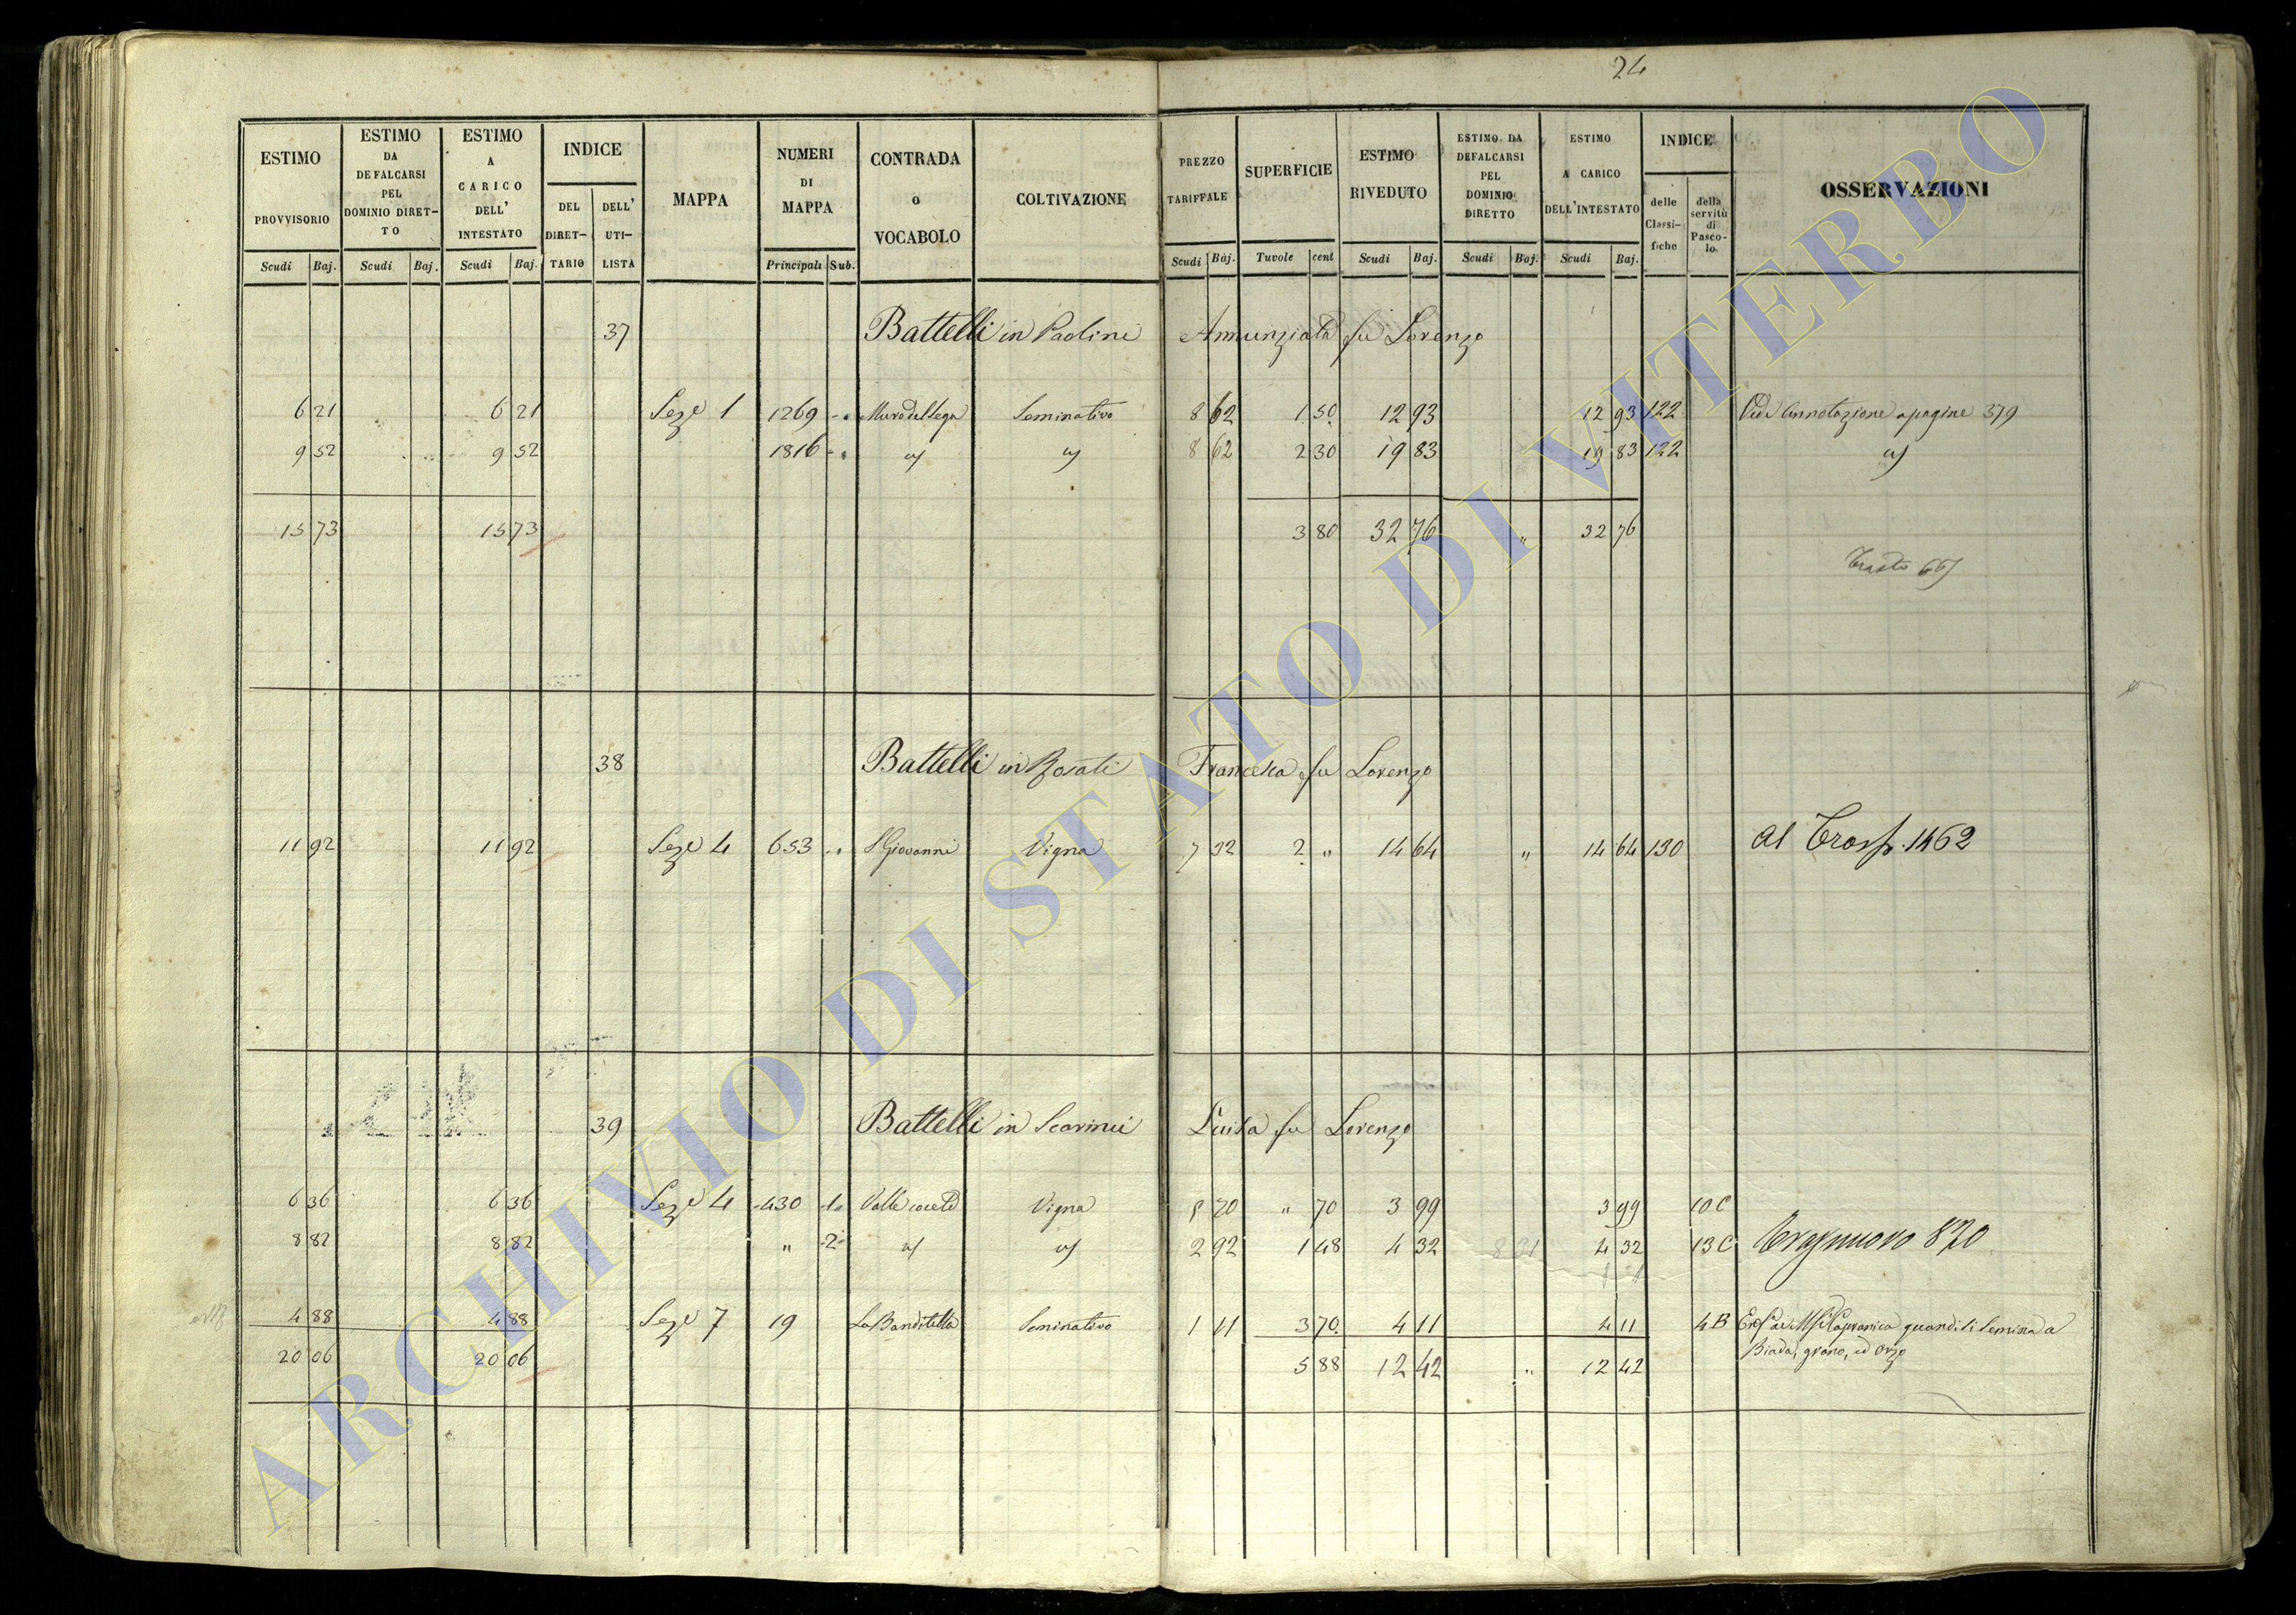 24
ESTIMO PROVVISORIO Scudi Baj.
ESTIMO DA DEFALCARSI PEL DOMINIO DIRET-TO Scudi Baj.
ESTIMO A CARICO DELL' INTESTATO Scudi Baj.
INDICE DEL DIRET-TARIO DELL' UTI-LISTA
MAPPA
NUMERI DI MAPPA Principali Sub.
CONTRADA o VOCABOLO
COLTIVAZIONE
PREZZO TARIFFALE Scudi Baj.
SUPERFICIE Tavole cent
ESTIMO RIVEDUTO Scudi Baj.
ESTIMO DA DEFALCARSI PEL DOMINIO DIRETTO Scudi Baj.
ESTIMO A CARICO DELL'INTESTATO Scudi Baj.
INDICE delle Classi-fiche della servitù di Pasco-lo.
OSSERVAZIONI
37 Battelli in Paolini Annunziata fu Lorenzo
6 21 6 21 Seze 1 1269 Muro del lega Seminativo 8 62 1 50 12 93 12 93 122 Vedi Annotazione a pagine 379
9 52 9 52 1816 a/ a/ 8 62 2 30 19 83 19 83 122 a/
15 73 15 73 3 80 32 76 " 32 76
38 Battelli in Rosati Francesca fu Lorenzo
11 92 11 92 Seze 4 653 S Giovanni Vigna 7 32 2 " 14 64 " 14 64 130 Al Trasp. 1462
39 Battelli in Scarinci Luisa fu Lorenzo
6 36 6 36 Seze 4 430 1 Valle Vigna 5 70 " 70 3 99 3 99 10 C
8 82 8 82 " 2 a/ a/ 2 92 1 48 4 32 4 32 13 C 820
4 88 4 88 Seze 7 19 La Banditella Seminativo 1 11 3 70 4 11 4 11 4 B Capranica quando si semina a
Biada, grano, ed orzo
20 06 20 06 5 88 12 42 " 12 42
ARCHIVIO DI STATO DI VITERBO